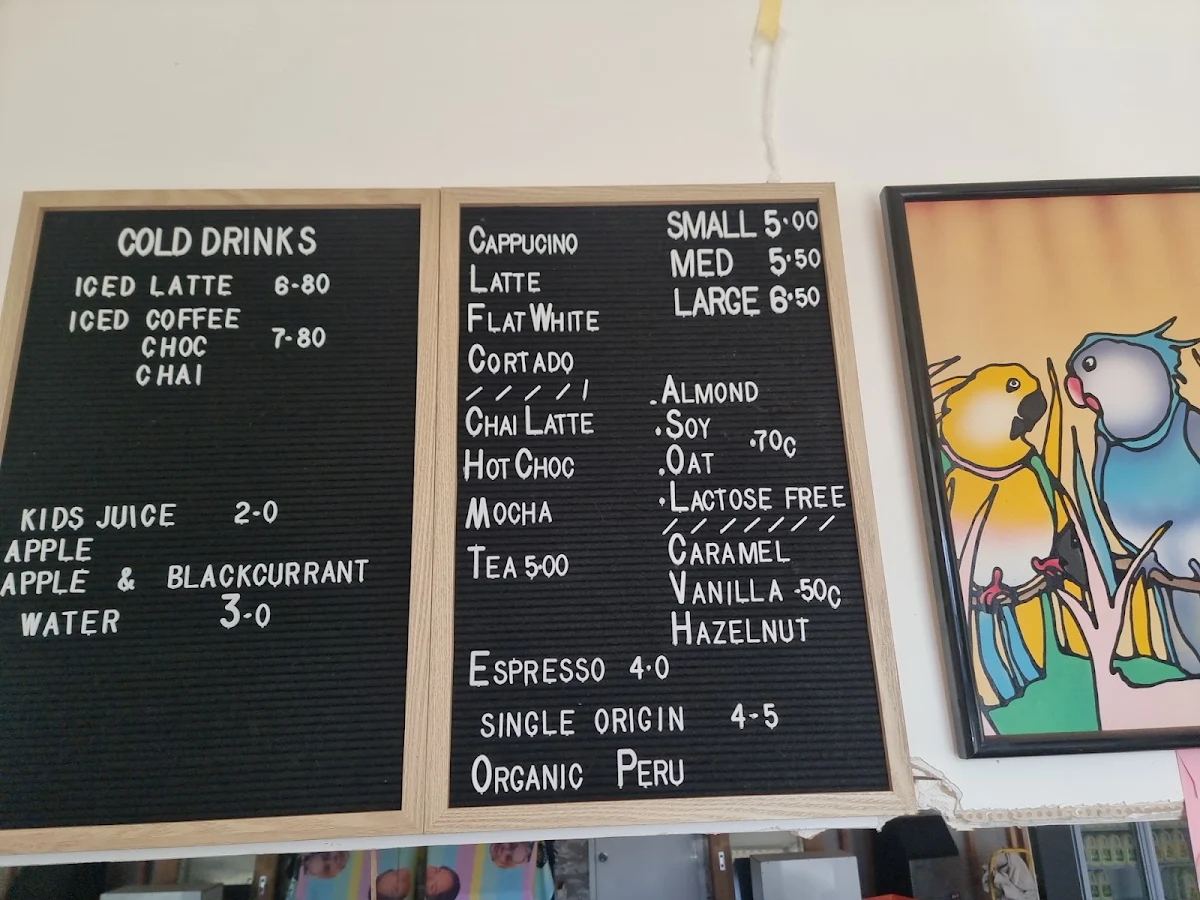 COLD DRINKS
ICED LATTE 6-80
ICED COFFEE
CHOC 7-80
CHAI
KIDS JUICE 2-0
APPLE
APPLE & BLACKCURRANT
WATER 3-0
CAPPUCINO
LATTE
FLAT WHITE
CORTADO
/ / / / /
CHAI LATTE
HOT CHOC
MOCHA
TEA 5·00
SMALL 5·00
MED 5·50
LARGE 6·50
.ALMOND
.SOY ·70c
.OAT
·LACTOSE FREE
/ / / / / / /
CARAMEL
VANILLA -50c
HAZELNUT
ESPRESSO 4·0
SINGLE ORIGIN 4-5
ORGANIC PERU